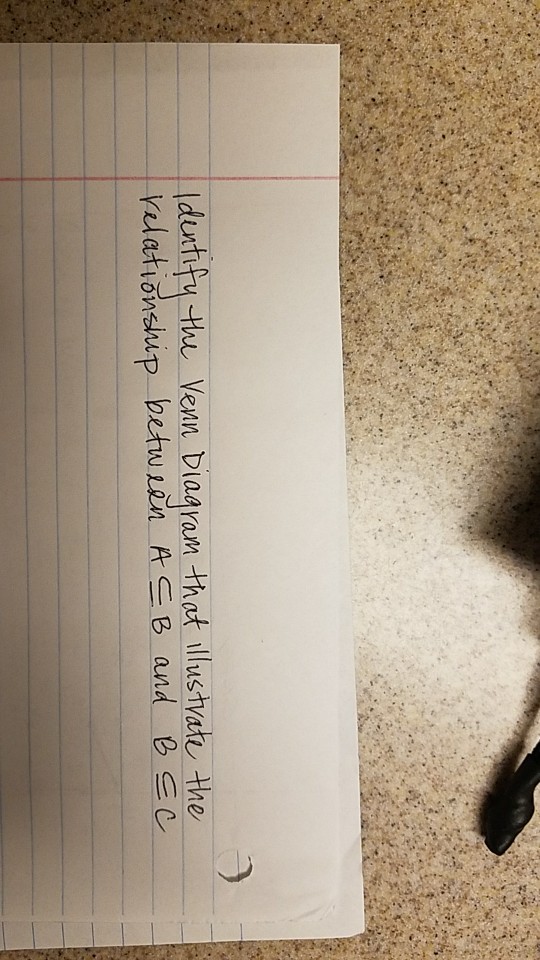 Identify the Venn Diagram that illustrate the
relationship between A ⊆ B and B ⊆ C